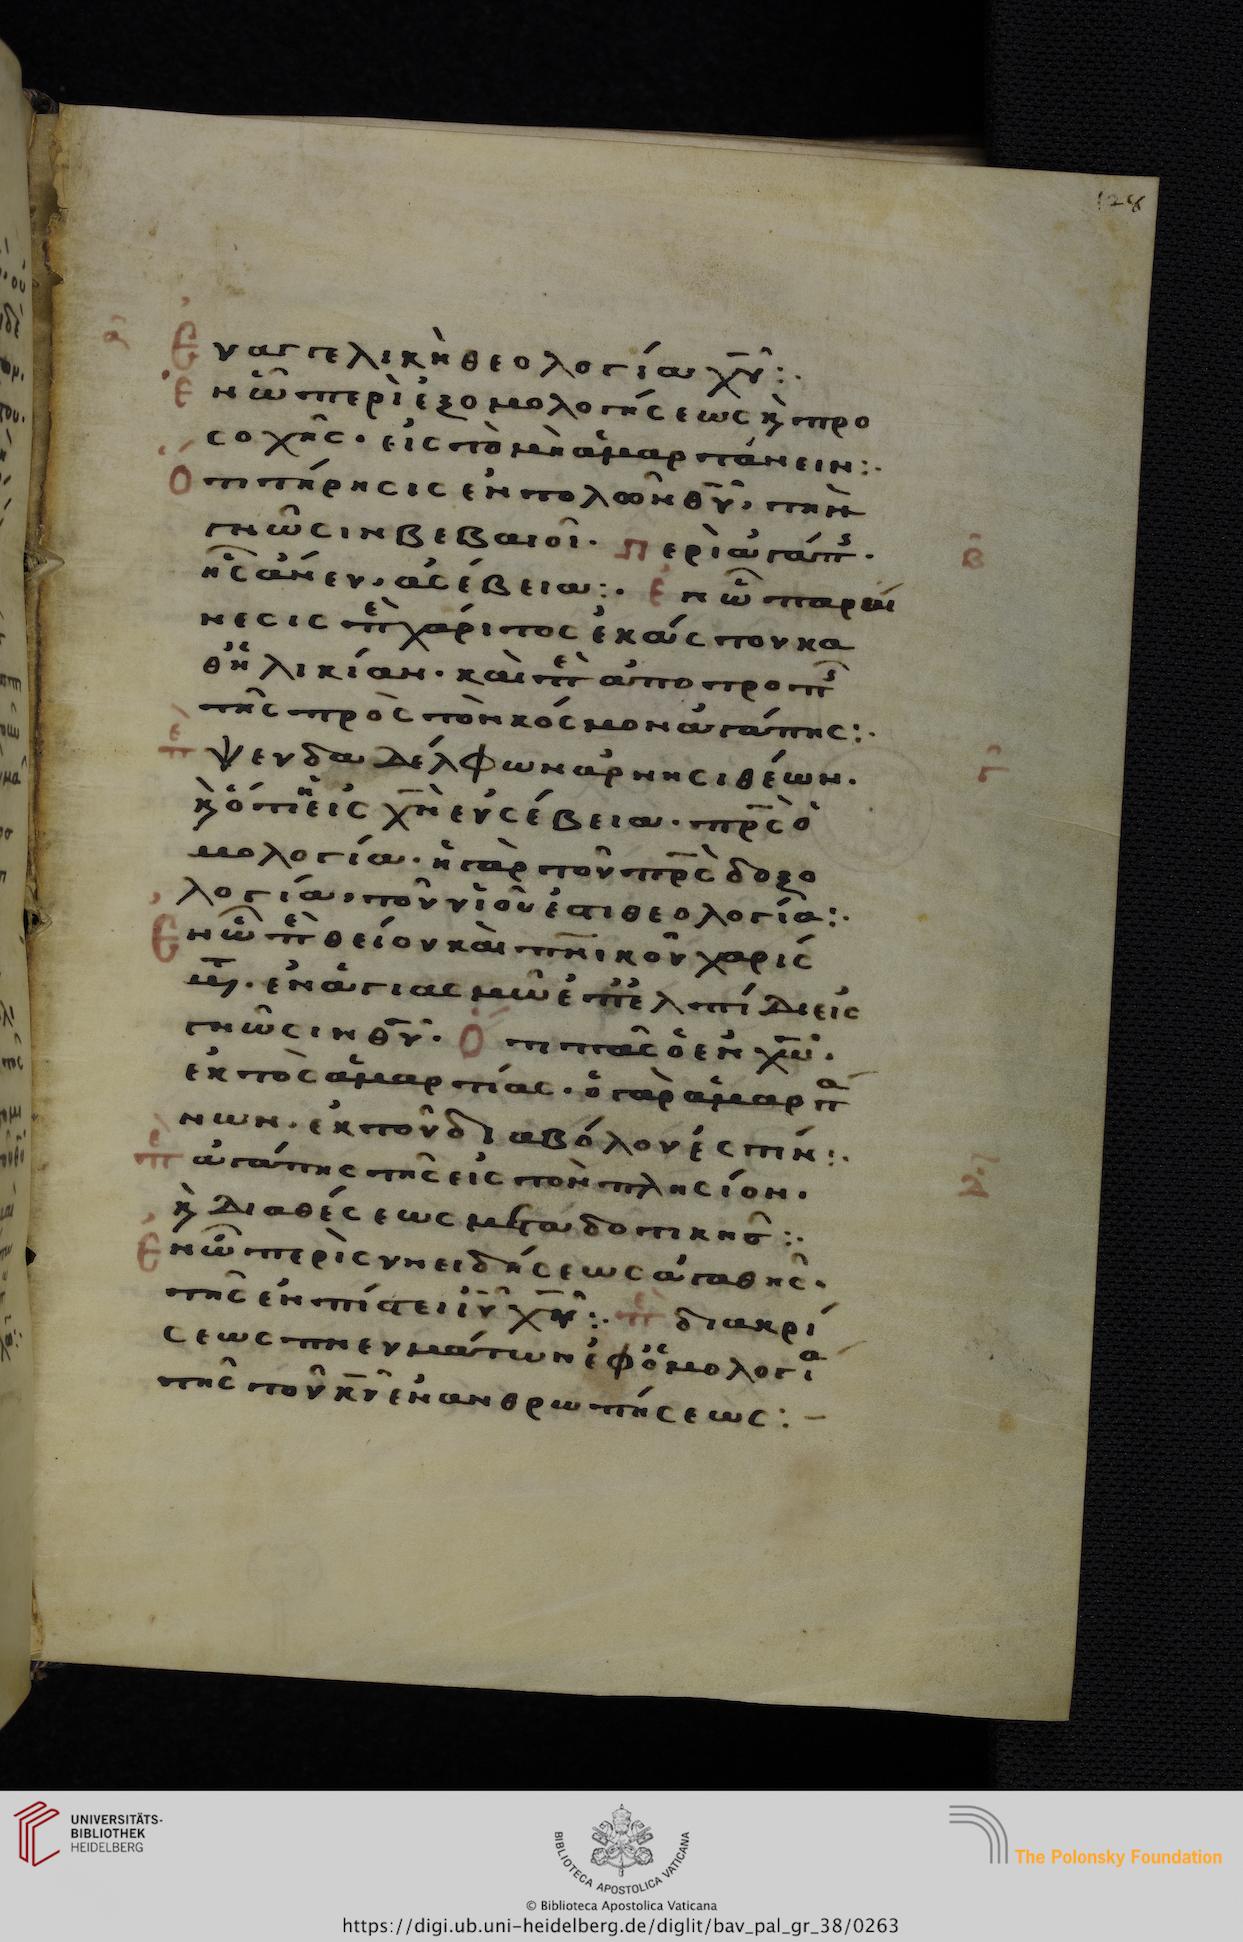 128
α Ευαγγελικὴ θεολογία χυ:·
ἐν ᾧ περὶ ἐξομολογήσεως κ προ
σοχῆς· εἰς τὸ μὴ ἁμαρτάνειν:·
Ὅτι τήρησις ἐντολῶν θυ, τὴν
γνῶσιν βεβαιοῖ· Περὶ ἀγάπ· β
ἧς ἄνευ, ἀσέβεια:· ἐν ᾧ παραί
νεσις πε χάριτος ἑκάστου κα
θ ἡλικίαν· καὶ πε ἀποτροπ
τῆς πρὸς τὸν κόσμον ἀγάπης:·
πε ψευδαδέλφων ἀρνησιθέων· γ
κ ὅτι ἡ εἰς χν εὐσέβεια· πρς ὁ
μολογία· ἡ γὰρ τοῦ πρς δοξο
λογία, τοῦ υἱοῦ ἐστι θεολογία:·
Ἐν ᾧ πε θείου καὶ πνικοῦ χαρίσ
μτ· ἐν ἁγιασμῶ ἐπ ἐλπίδι εἰς
γνῶσιν θυ· Ὅτι πᾶς ὁ ἐν χω·
ἐκτὸς ἁμαρτίας· ὁ γὰρ ἁμαρτά
νων· ἐκ τοῦ διαβόλου ἐστίν:·
πε ἀγάπης τῆς εἰς τὸν πλησίον· δ
κ διαθέσεως μεταδοτικῆσ:·
Ἐν ᾧ περὶ συνειδήσεως ἀγαθῆς·
τῆς ἐν πίστει ιυ χυ:· πε διακρί
σεως πνευμάτων ἐφ ὁμολογία
τῆς τοῦ κυ ἐνανθρωπήσεως:–
UNIVERSITÄTS-
BIBLIOTHEK
HEIDELBERG
BIBLIOTECA APOSTOLICA VATICANA
The Polonsky Foundation
© Biblioteca Apostolica Vaticana
https://digi.ub.uni-heidelberg.de/diglit/bav_pal_gr_38/0263